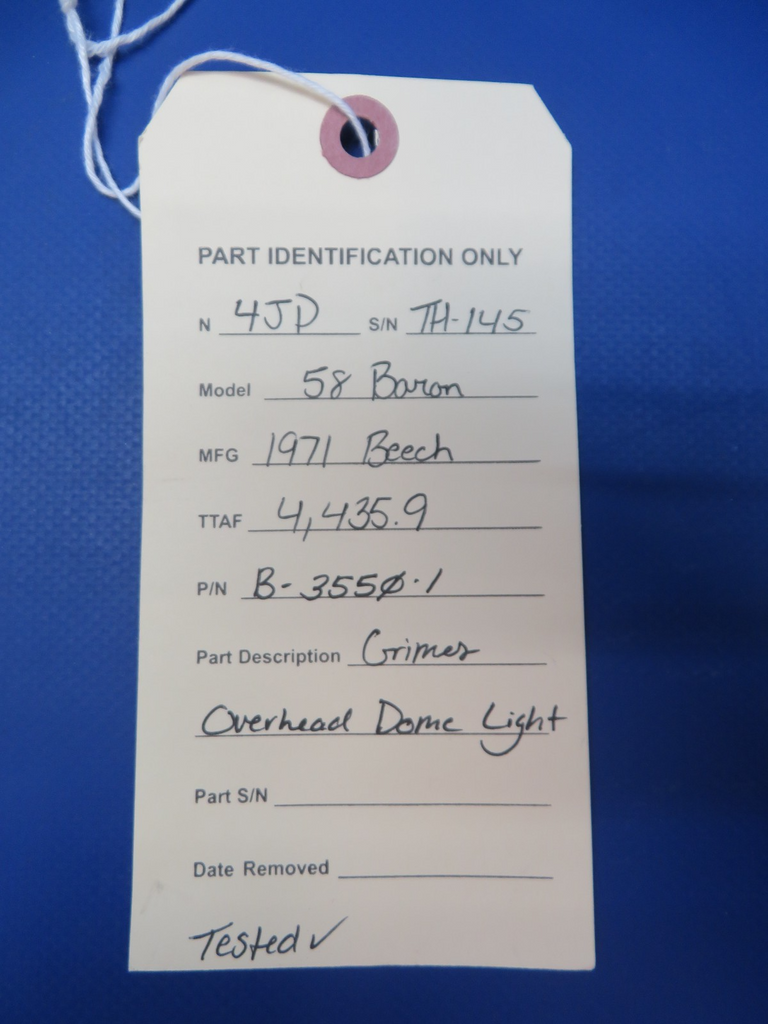 PART IDENTIFICATION ONLY
N 4JD S/N TH-145
Model 58 Baron
MFG 1971 Beech
TTAF 4,435.9
P/N B-3550-1
Part Description Grimes
Overhead Dome Light
Part S/N
Date Removed
Tested ✓